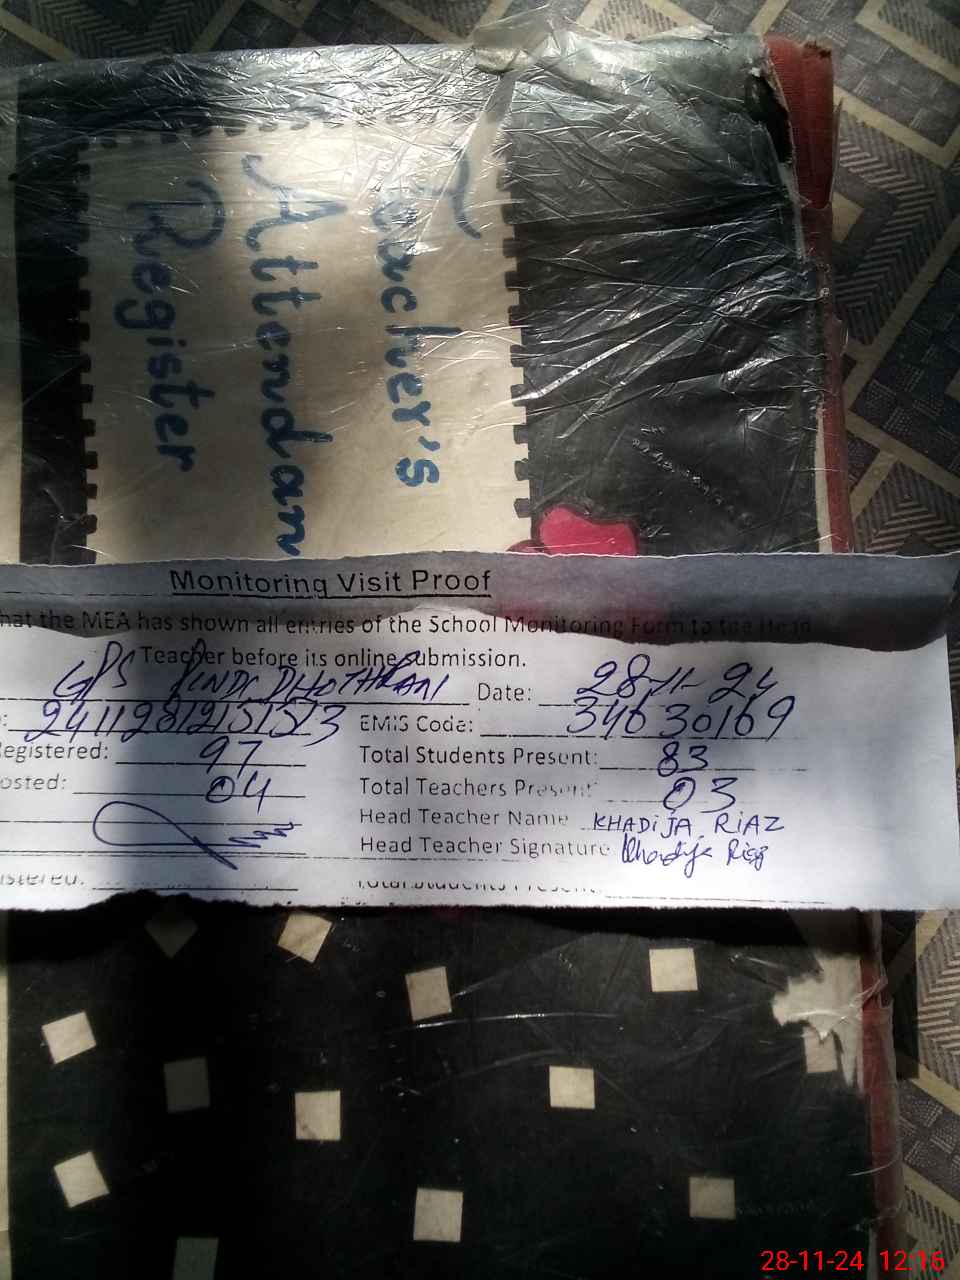 Teacher's
Attendan
Register
Monitoring Visit Proof
hat the MEA has shown all entries of the School Monitoring Form to the Head
Teacher before its online submission.
GPS Date: 28-11-24
EMIS Code: 34630169
egistered: 97 Total Students Present: 83
osted: 04 Total Teachers Present: 03
Head Teacher Name KHADIJA RIAZ
Head Teacher Signature Khadija Riaz
istered: Total Students Present:
28-11-24 12:16